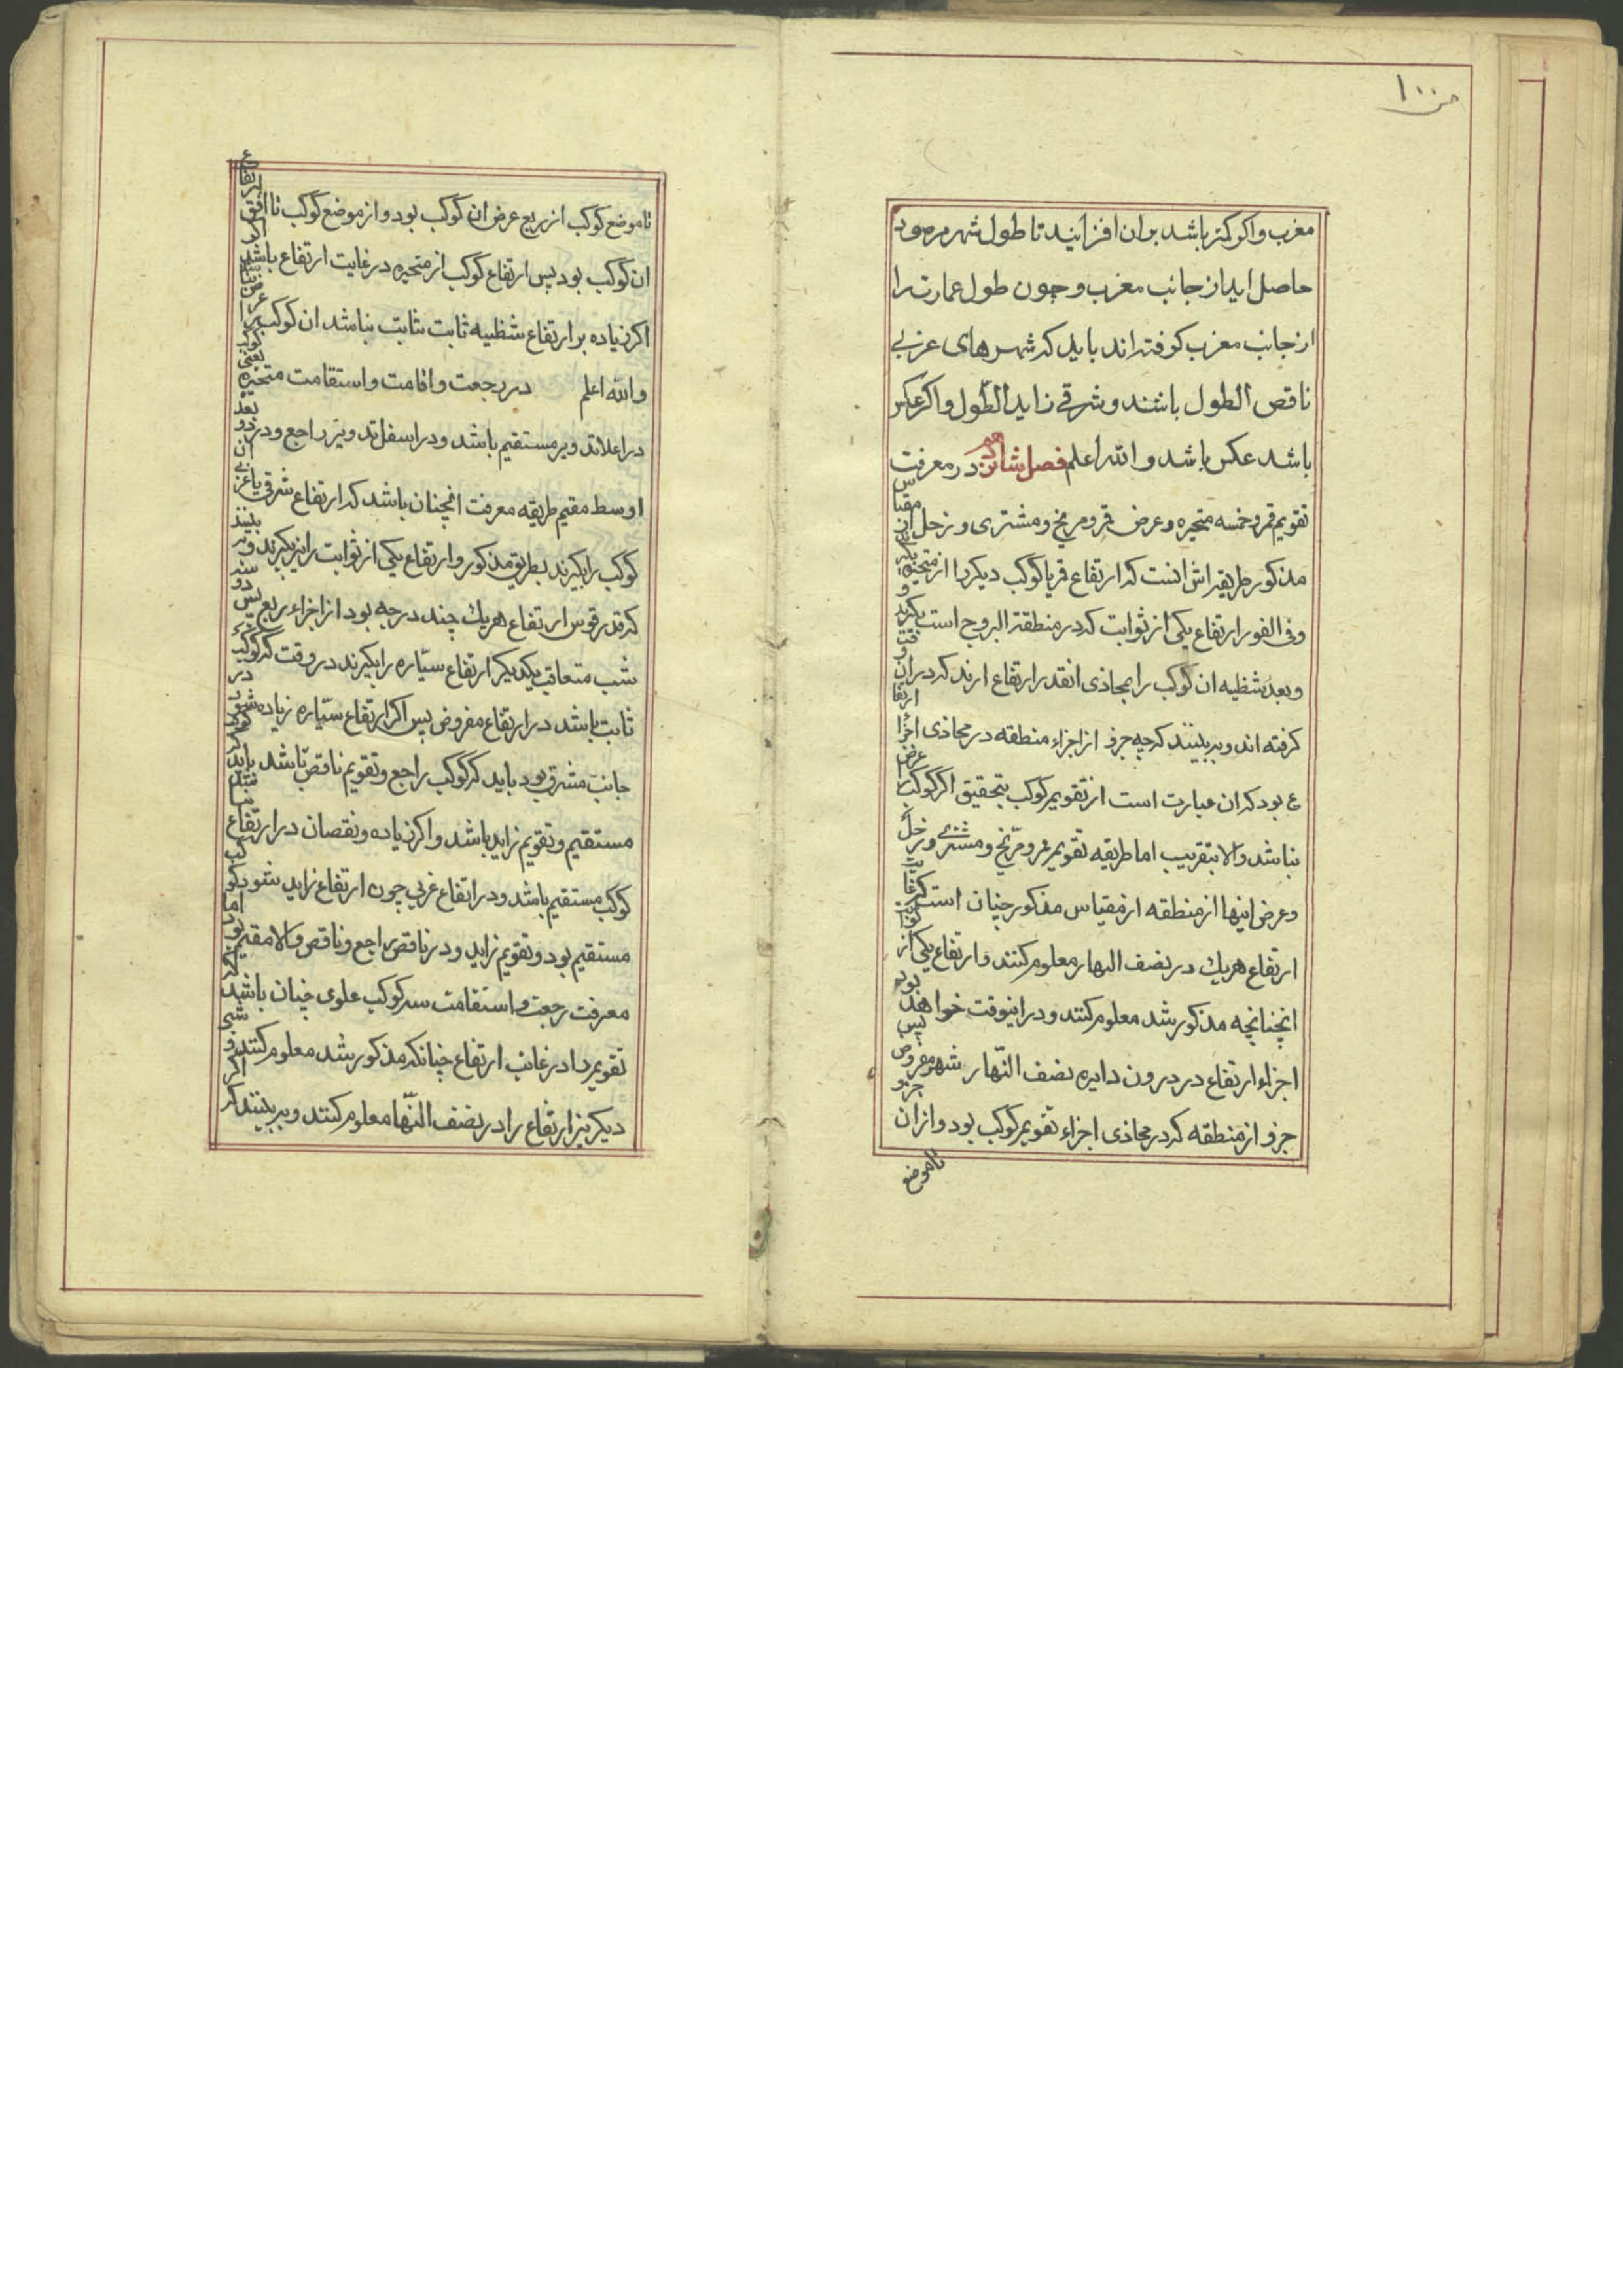 ص ۱۰۰
مغرب و اکر کمتر باشد بران افزایند تا طول شهر مرصود
حاصل اید از جانب مغرب و چون طول عمارت را
از جانب مغرب کرفته اند باید که شهرهای غربی
ناقص الطول باشند و شرقی زاید الطول و اکر عکس
باشد عکس باشد و الله اعلم فصل شانزدهم در معرفت
تقویم قمر و خمسه متحیره و عرض قمر و مریخ و مشتری و زحل از مقیاس
مذکور طریقه اش انست که ارتفاع قمر یا کوکب دیکر را از متحیره بکیرند
و فی الفور ارتفاع یکی از ثوابت که در منطقة البروج است بکیرند و
و بعد شظیه ان کوکب را بمحاذی انقدر ارتفاع ارند که در ان وقت
کرفته اند و ببینند که چه جزو از اجزاء منطقه در محاذی اجزا ارتفا
ع بود که ان عبارت است از تقویم کوکب بتحقیق اکر کوکب را عرض
نباشد والا بتقریب اما طریقه تقویم قمر و مریخ و مشتری و زحل
و عرض اینها از منطقه از مقیاس مذکور چنان است که غایت
ارتفاع هریك در نصف النهار معلوم کنند و ارتفاع یکی از ثوابت
انچنانچه مذکور شد معلوم کنند و در اینوقت خواهد بود
اجزاء ارتفاع در درون دایره نصف النّهار شهر مفروض پس
جزو از منطقه که در محاذی اجزاء تقویم کوکب بود و از ان جزو
تا موضع
تا موضع کوکب از ربع عرض ان کوکب بود و از موضع کوکب تا افق ارتفاع
ان کوکب بود پس ارتفاع کوکب از متحیره در غایت ارتفاع باشد اکر
اکر زیاده بر ارتفاع شظیه ثابت نباشد ان کوکب را عرض نباشد
و الله اعلم در رجعت و اقامت و استقامت متحیره یعنی کوکب
در اعلا تدویر مستقیم باشد و در اسفل تدویر راجع و در دو بعد
اوسط مقیم طریقه معرفت انچنان باشد که ارتفاع شرقی یا غربی ان
کوکب را بکیرند بطریق مذکور و ارتفاع یکی از ثوابت را نیز بکیرند و ببینند
که قدر قوس ارتفاع هریك چند درجه بود از اجزاء ربع پس دو سه
شب متعاقب یکدیکر ارتفاع سیّاره را بکیرند در وقت که کوکب
ثابت باشد در ارتفاع مفروض پس اکر ارتفاع سیّاره زیاده شود در
جانب مشرق بود باید که کوکب راجع و تقویم ناقص باشد
مستقیم و تقویم زاید باشد و اکر زیاده و نقصان در ارتفاع نباشد
کوکب مستقیم باشد و در ارتفاع غربی چون ارتفاع زاید شود کوکب
مستقیم بود و تقویم زاید و در ناقص راجع و ناقص والا مقیم بود اما
معرفت رجعت و استقامت سه کوکب علوی چنان باشد که
تقویم را در غایت ارتفاع چنانکه مذکور شد معلوم کنند و شبی
دیکر نیز ارتفاع را در نصف النّهار معلوم کنند و ببینند که اکر